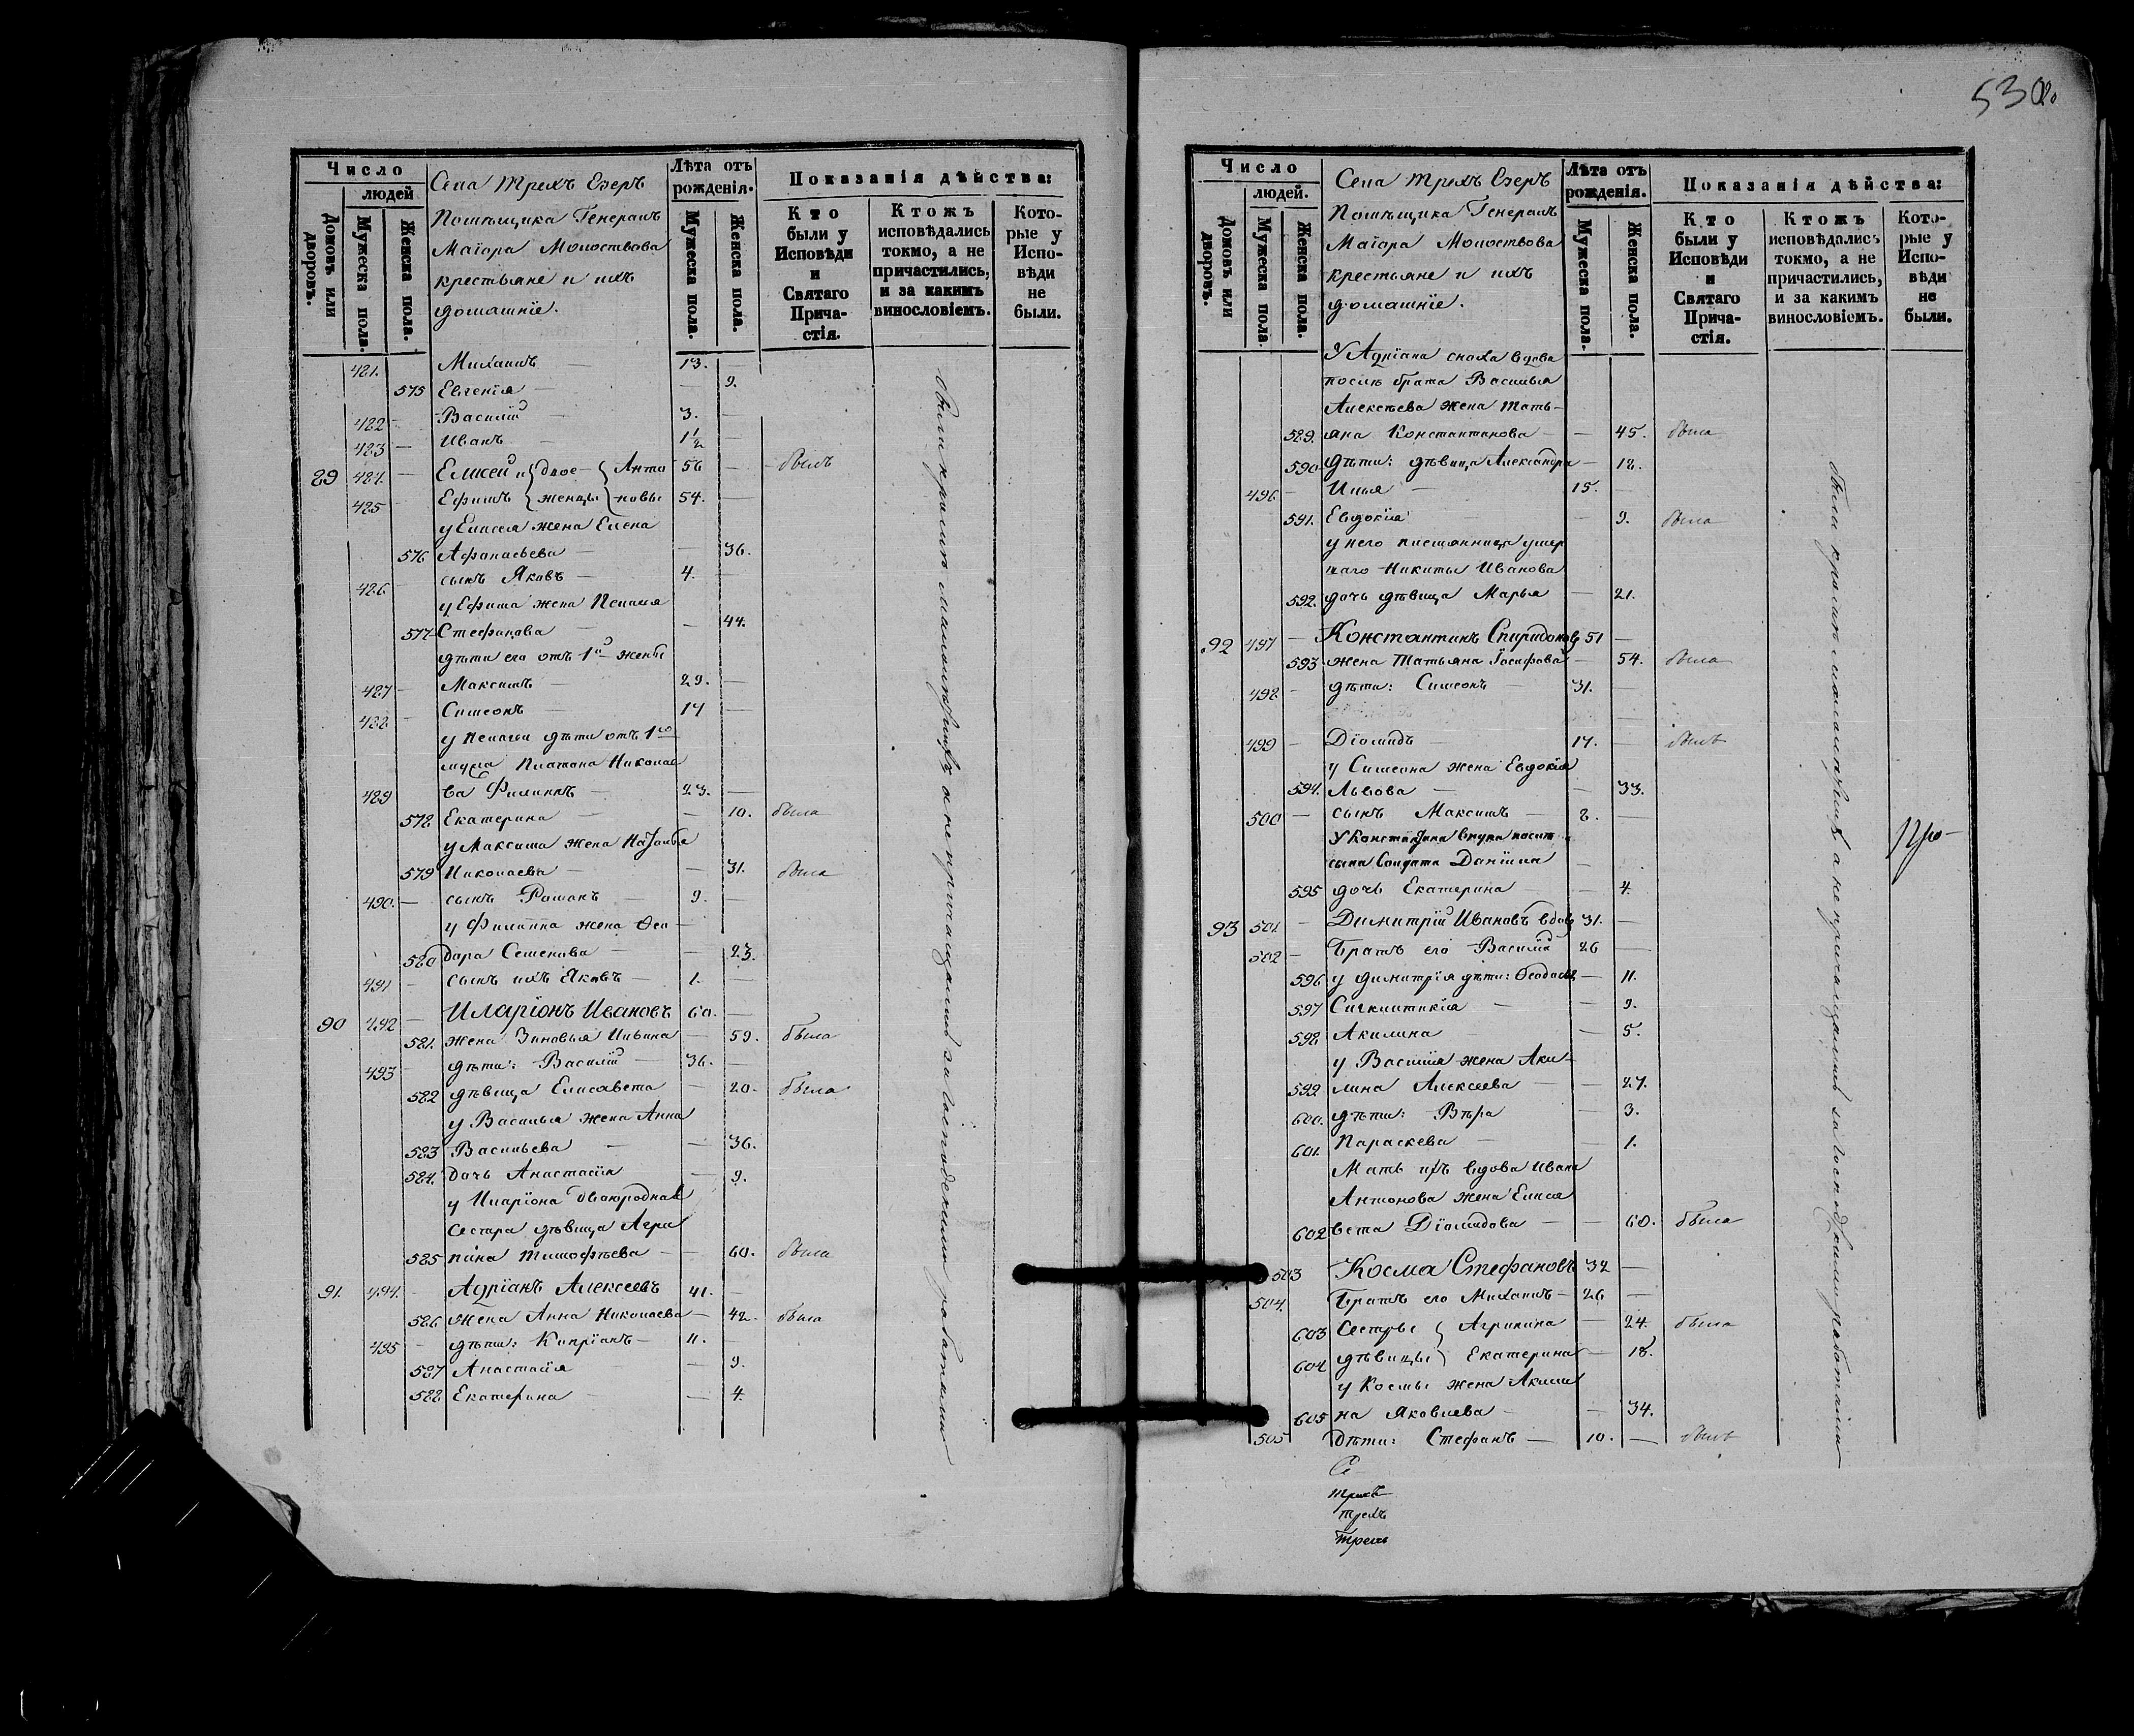 530
Число
людей
Домовъ или дворовъ.
Мужеска пола.
Женска пола.
Села Трехъ Озеръ
Помѣщика Генералъ
Маіора Молоствова
крестьяне и ихъ
домашніе.
Лѣта отъ рожденія.
Мужеска пола.
Женска пола.
Показанія дѣйства:
Кто были у Исповѣди и Святаго Причастія.
Ктожъ исповѣдались токмо, а не причастились, и за какимъ винословіемъ.
Которые у Исповѣди не были.
481. Михаилъ 13.
575 Евгенія 9.
482 Василій 3.
483 Иванъ 1 1/2
89 484. Елисей и двое- Анти 56 былъ
485 Ефимъ женцы повы 54.
у Елисея жена Елена
576 Афанасьева 36.
486 сынъ Яковъ 4.
у Ефима жена Пелагея
577 Стефанова 44.
дѣти его отъ 1й жены
487 Максимъ 29.
488 Симеонъ 17
у Пелагеи дѣти отъ 1го
мужа Платона Николае
489 ва Филиппъ 23.
578 Екатерина 10. была
у Максима жена Наталья
579 Николаева 31. была
490. сынъ Романъ 9.
у Филиппа жена Ѳео
580 дора Семенова 23.
491 сынъ ихъ Яковъ 1.
90 492 Иларіонъ Ивановъ 60.
581. жена Зиновья Ильина 59. была
493 дѣти: Василій 36.
582 дѣвица Елисавета 20. была
у Василья жена Анна
583 Васильева 36.
584. дочь Анастасія 9.
у Иларіона двоюродная
сестра дѣвица Агри
585 пина Тимофѣева 60. была
91. 494. Адріанъ Алексеевъ 41.
586 жена Анна Николаева 42. была
495 дѣти: Кипріанъ 11.
587 Анастасія 9.
588 Екатерина 4.
были кромѣ малолѣтнихъ а не причащались за господскими работами
Число
людей.
Домовъ или дворовъ.
Мужеска пола.
Женска пола.
Села Трехъ Озеръ
Помѣщика Генералъ
Маіора Молоствова
крестьяне и ихъ
домашніе.
Лѣта отъ рожденія.
Мужеска пола.
Женска пола.
Показанія дѣйства:
Кто были у Исповѣди и Святаго Причастія.
Ктожъ исповѣдались токмо, а не причастились, и за какимъ винословіемъ.
Которые у Исповѣди не были.
У Адріана сноха вдова
послѣ брата Василья
Алексѣева жена Тать-
589. яна Константинова 45. была
590. дѣти: дѣвица Александра 18.
496 Илья 15.
591. Евдокія 9. была
у него племянница умер
шаго Никиты Иванова
592. дочь дѣвица Марья 21.
92 497 Константинъ Спиридоновъ 51
593 жена Татьяна Іосифова 54. была
498 дѣти: Симеонъ 31.
499 Діомидъ 17. былъ
у Симеона жена Евдокія
594. Львова 33.
500 сынъ Максимъ 8.
У Константина внука послѣ
сына Солдата Даніила
595 дочь Екатерина 4.
93 501 Димитрій Ивановъ вдовъ 31.
502 Братъ его Василій 26
596 у Димитрія дѣти: Ѳеодосья 11.
597 Сигклитикія 9.
598 Акилина 5.
у Василія жена Аки-
599 лина Алексеева 27.
600. дѣти: Вѣра 3.
601. Параскева 1.
Мать ихъ вдова Ивана
Антонова жена Елиса
602 вета Діомидова 60. была
503 Косма Стефановъ 32
504. Братъ его Михаилъ 26
603 Сестры Агрипина 24. была
604 дѣвицы Екатерина 18.
у Космы жена Акили
605 на Яковлева 34.
505 Дѣти: Стефанъ 10. былъ
были кромѣ малолѣтнихъ а не причащались за господскими работами
Трехъ
Трехъ
Трехъ